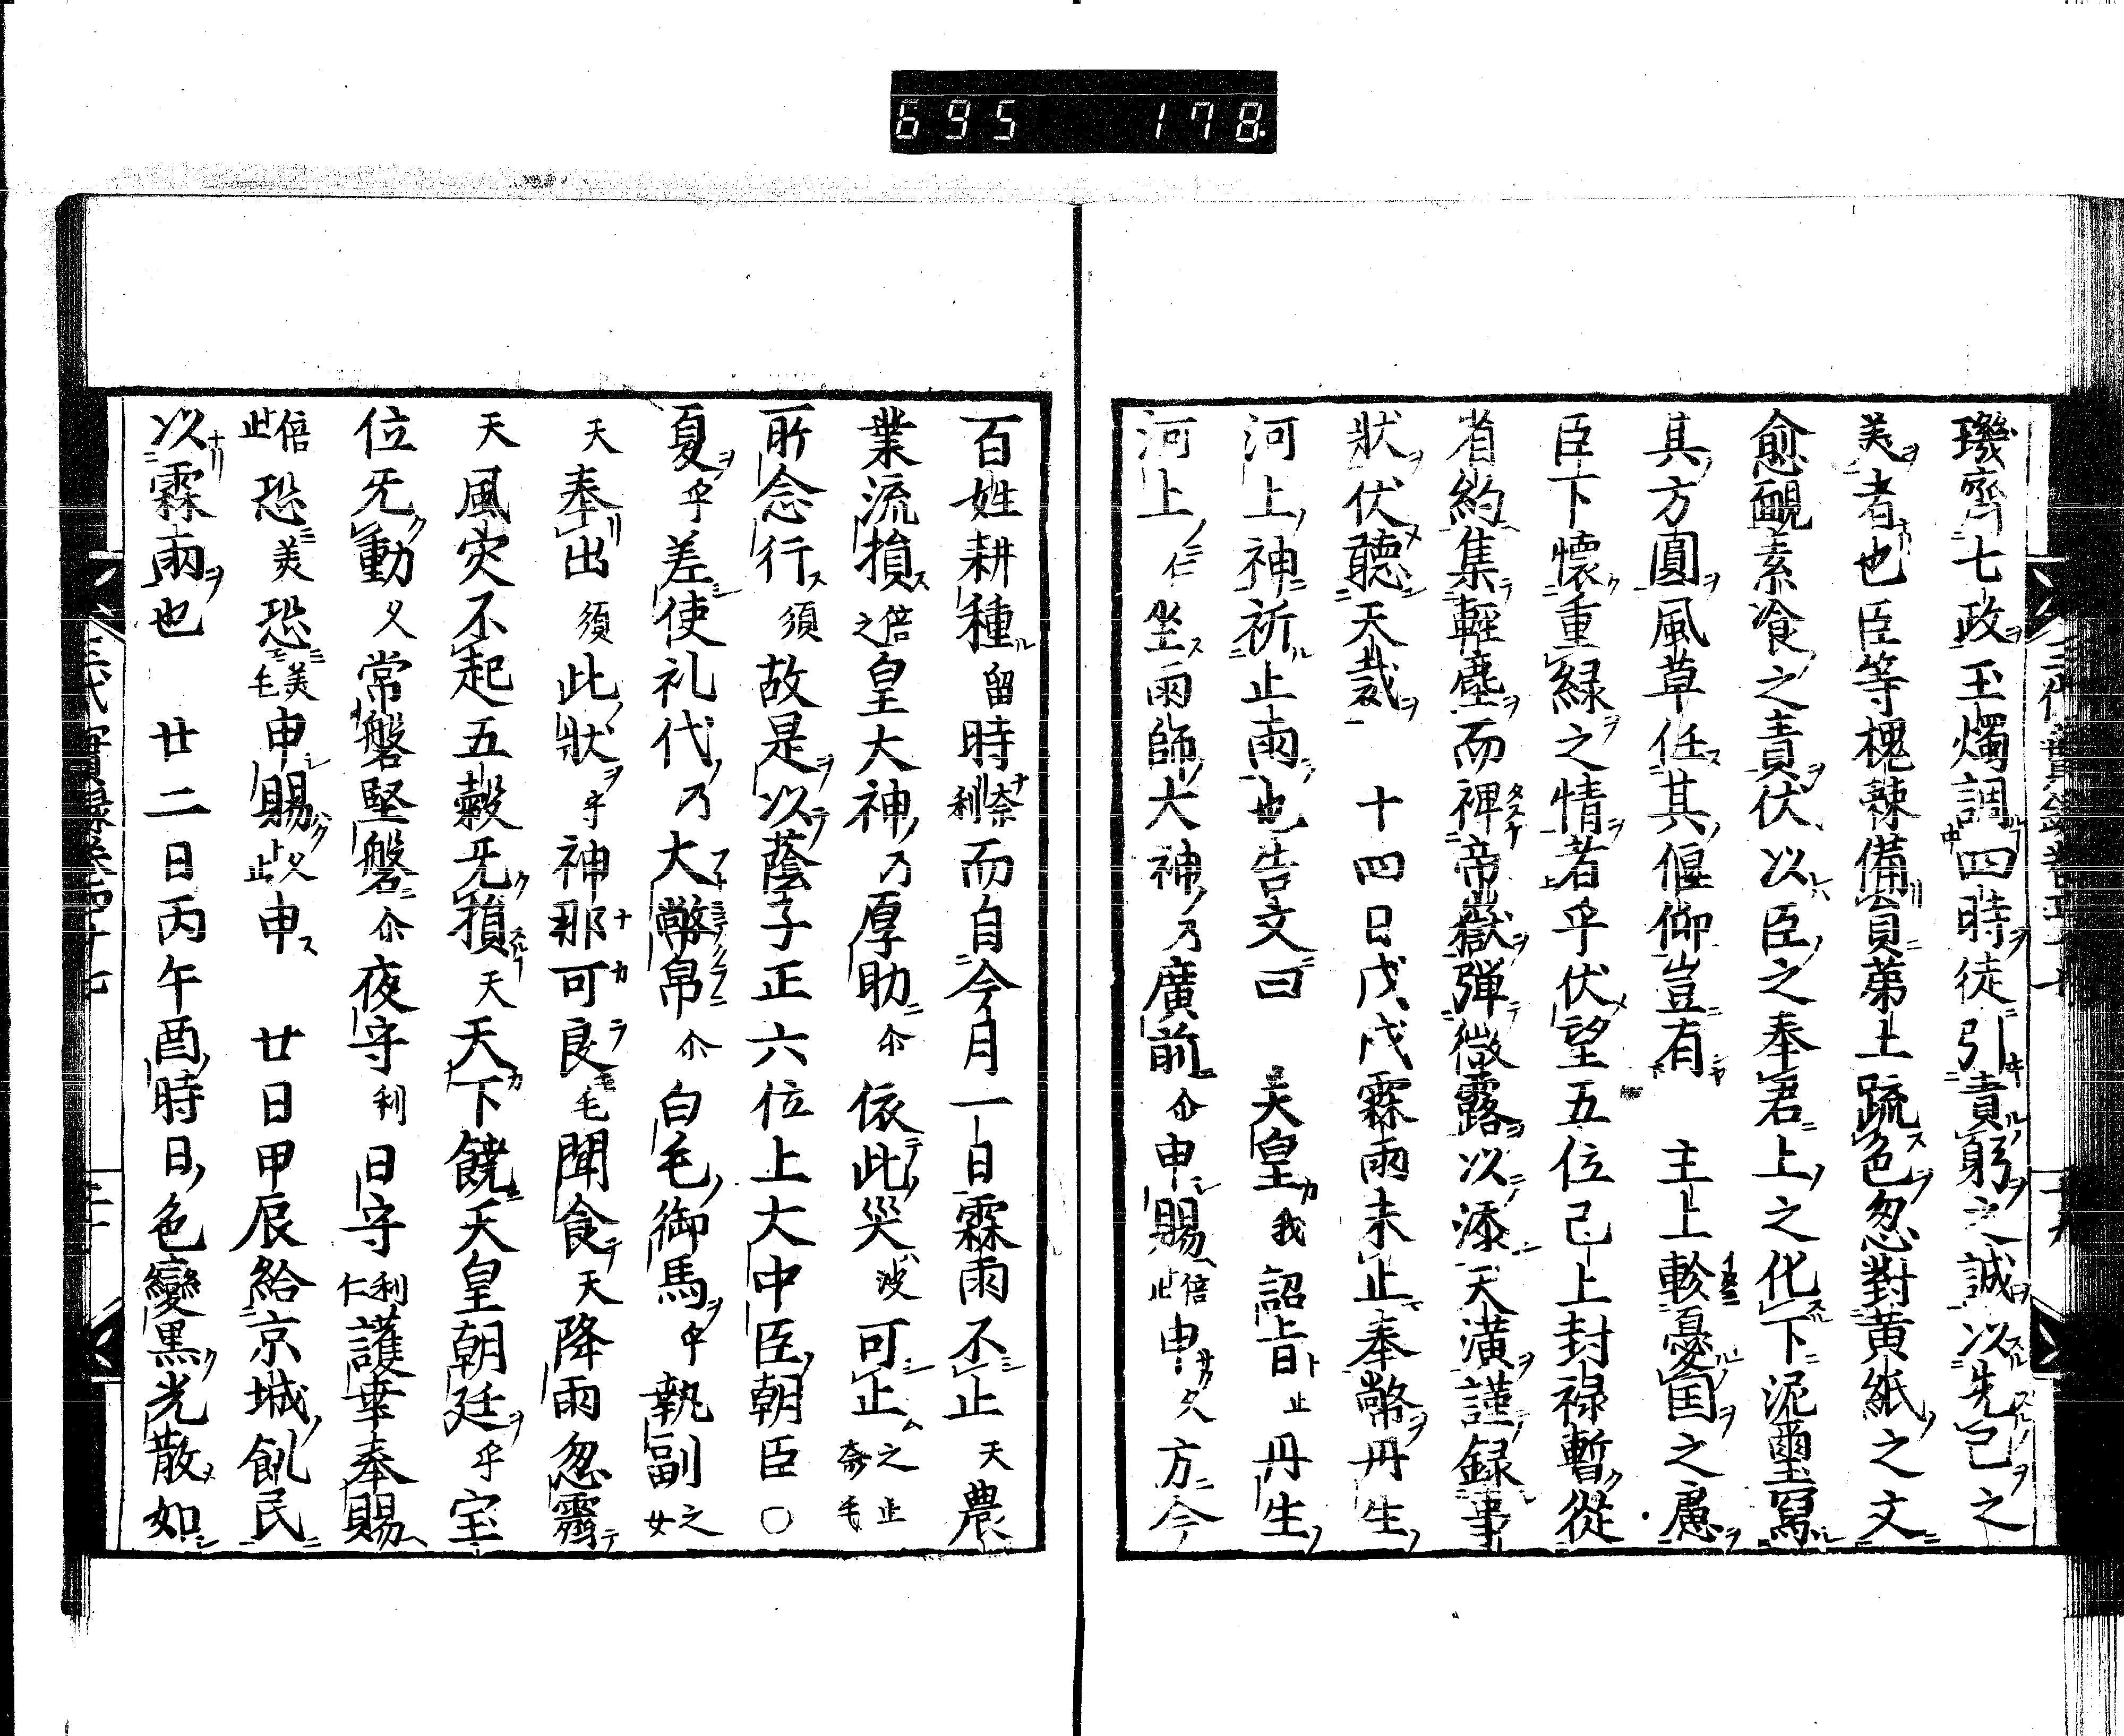 695 178
璣齊七政玉燭調四時徒引責躬之誠以先己之
美者也臣等槐棘備員苐土䟽色忽對黄紙之文
愈靦素飡之責伏以臣之奉君上之化下泥璽寫
其方圓風草任其偃仰豈有 主上軫憂国之慮
臣下懷重緑之情者乎伏望五位已上封禄暫從
省約集輕塵而裨帝嶽弾微露以添天潢謹録事
狀伏聽天裁 十四日戊戌霖雨未止奉幣丹生
河上神祈止雨也告文曰 天皇我詔旨止丹生
河上仁坐雨師大神乃廣前尒申賜倍止申久方今
百姓耕種留時奈利而自今月一日霖雨不止天農
業流損倍之皇大神乃厚助尒依此災波可止之止奈毛
所念行須故是以蔭子正六位上大中臣朝臣〇
夏乎差使礼代乃大幣帛尒白毛御馬乎執副之女
天奉出須此狀乎神那可良毛聞食天降雨忽霽
天風灾不起五糓无損天天下饒天皇朝廷乎宝
位无動久常磐堅磐尒夜守利日守利仁護幸奉賜
倍止恐美恐美毛申賜久止申 廿日甲辰給京城飢民
以霖雨也 廿二日丙午酉時日色變黒光散如